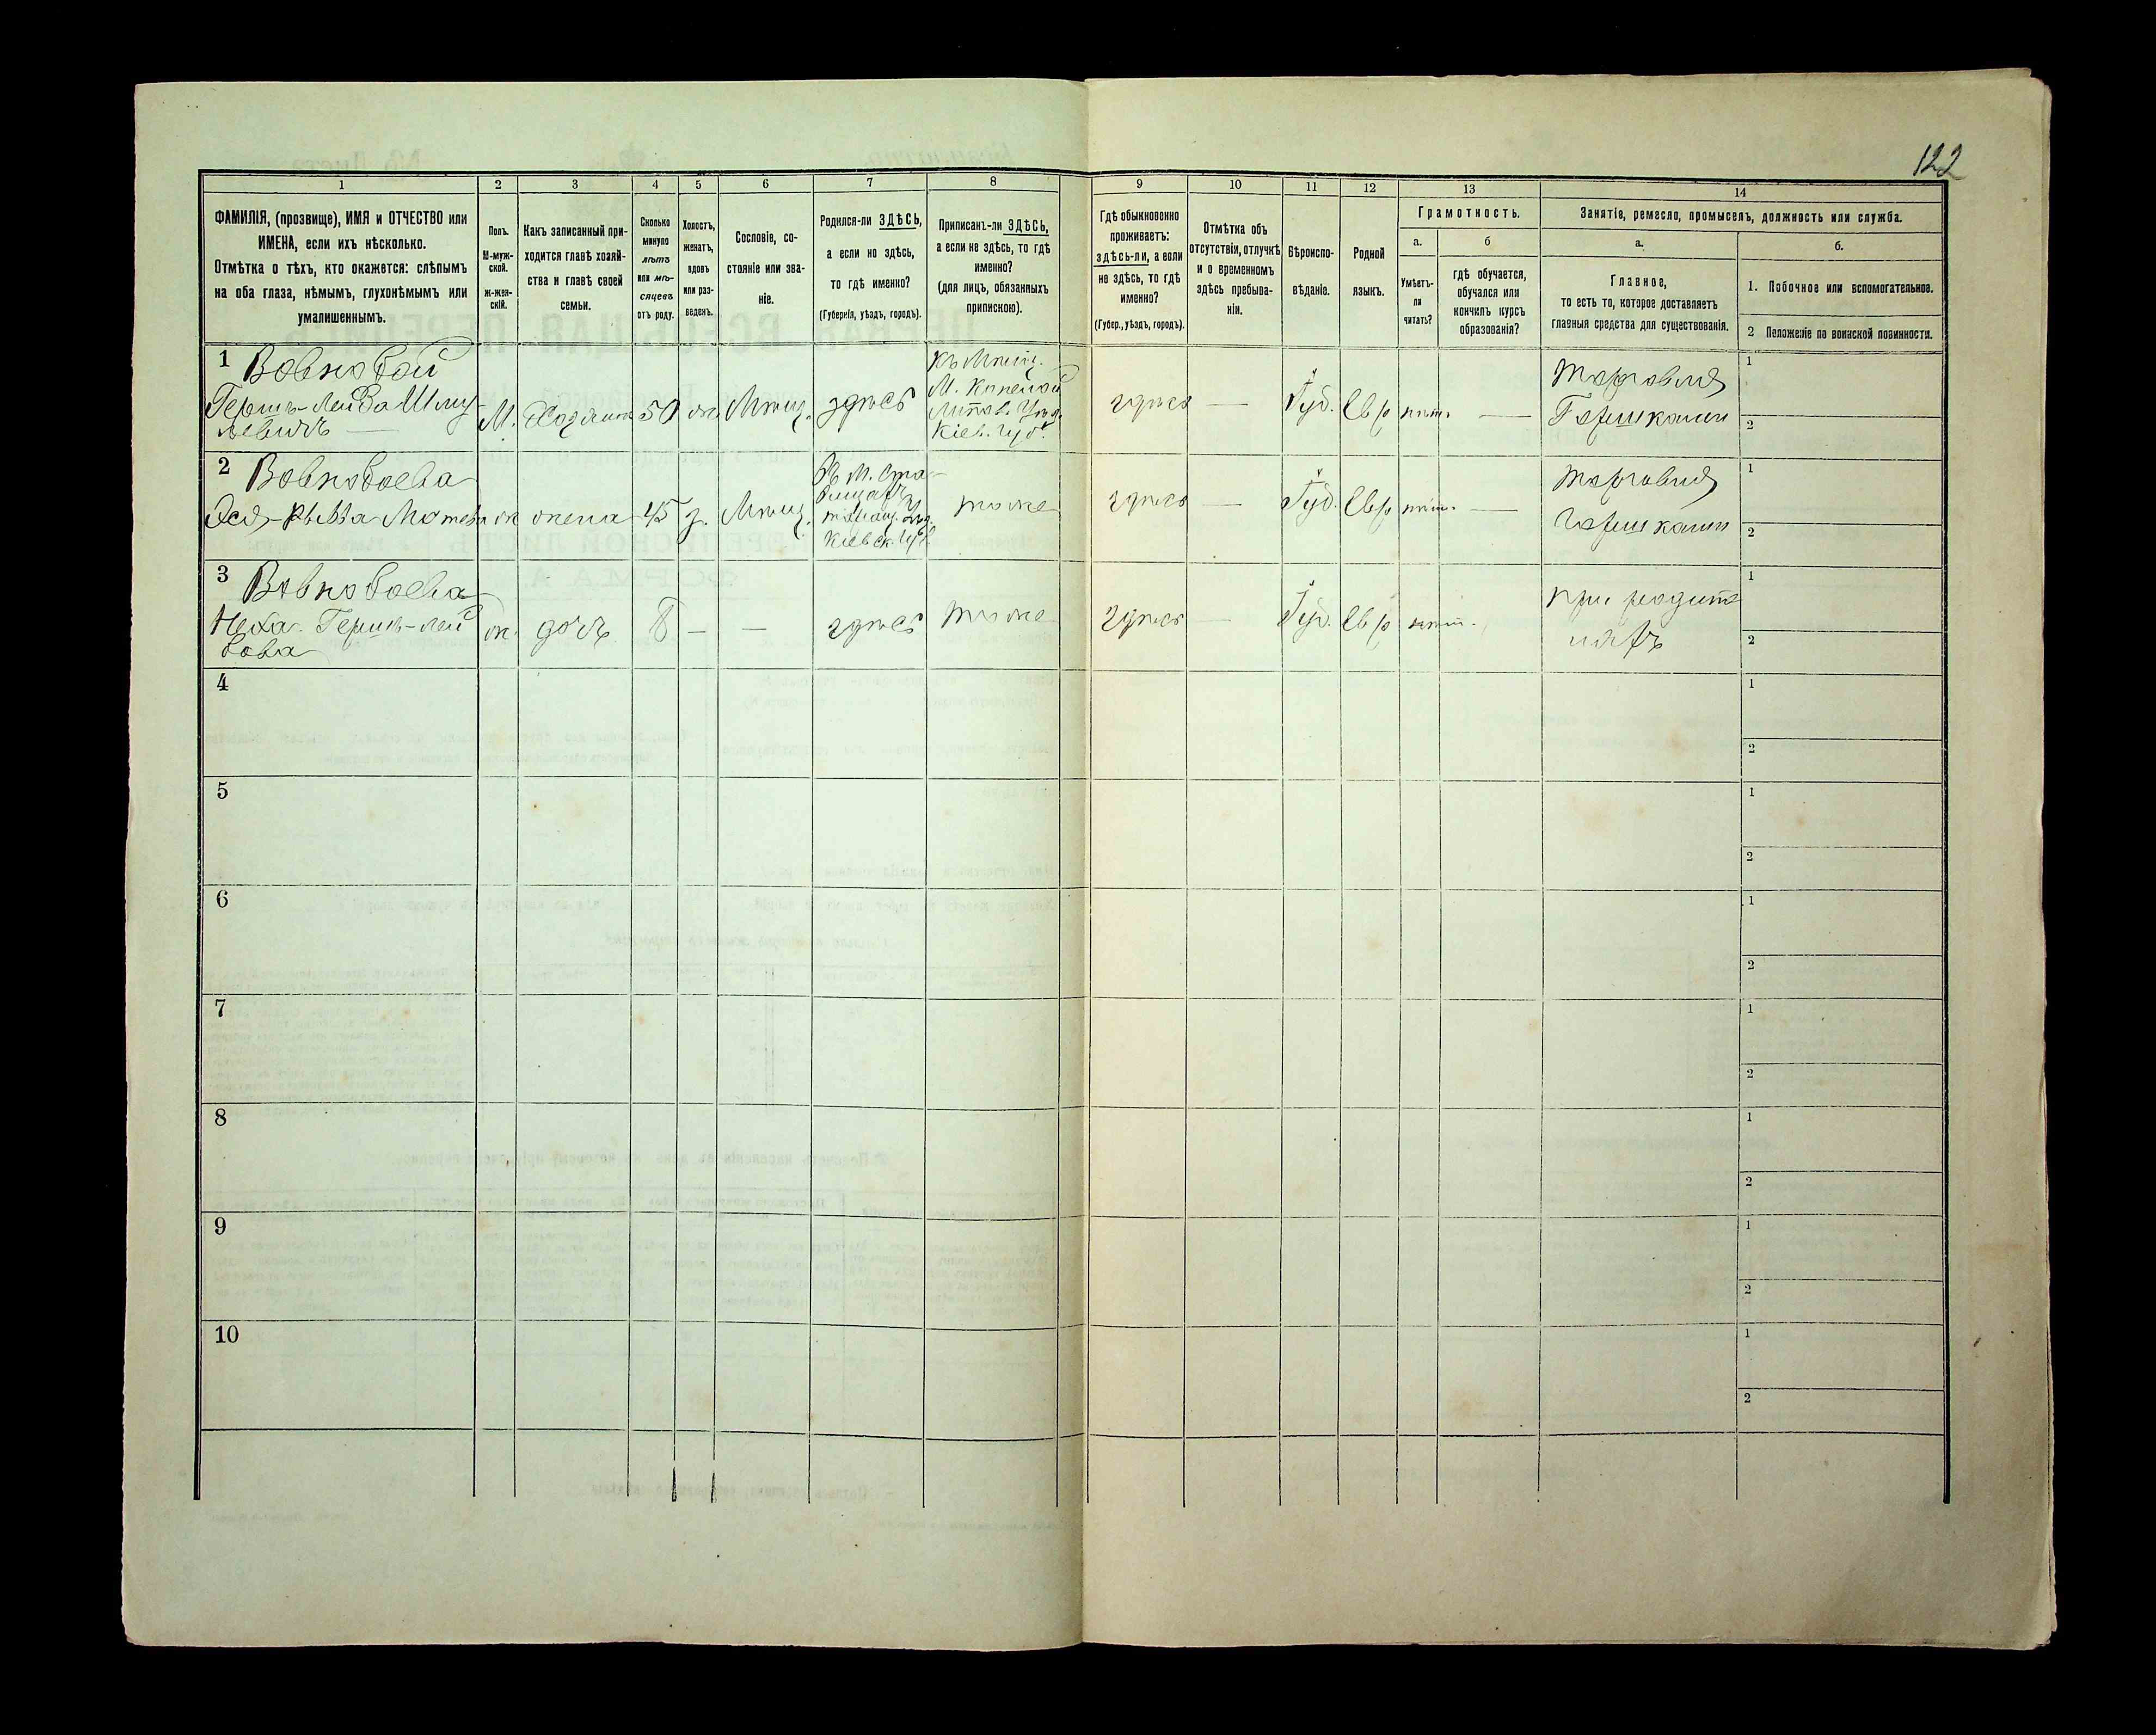 122
1
2
3
4
5
6
7
8
9
10
11
12
13
14
ФАМИЛІЯ, (прозвище), ИМЯ и ОТЧЕСТВО или
ИМЕНА, если ихъ нѣсколько.
Отмѣтка о тѣхъ, кто окажется: слѣпымъ
на оба глаза, нѣмымъ, глухонѣмымъ или
умалишеннымъ.
Полъ.
М-муж-
ской.
Ж-жен-
скій.
Какъ записанный при-
ходится главѣ хозяй-
ства и главѣ своей
семьи.
Сколько
минуло
лѣтъ
или мѣ-
сяцевъ
отъ роду.
Холостъ,
женатъ,
вдовъ
или раз-
веденъ.
Сословіе, со-
стояніе или зва-
ніе.
Родился-ли ЗДѢСЬ,
а если не здѣсь,
то гдѣ именно?
(Губернія, уѣздъ, городъ).
Приписанъ-ли ЗДѢСЬ,
а если не здѣсь, то гдѣ
именно?
(для лицъ, обязанныхъ
припискою).
Гдѣ обыкновенно
проживаетъ:
здѣсь-ли, а если
не здѣсь, то гдѣ
именно?
(Губер., уѣздъ, городъ).
Отмѣтка объ
отсутствіи, отлучкѣ
и о временномъ
здѣсь пребыва-
ніи.
Вѣроиспо-
вѣданіе.
Родной
языкъ.
Грамотность.
а.
б
Умѣетъ-
ли
читать?
гдѣ обучается,
обучался или
кончилъ курсъ
образованія?
Занятіе, ремесло, промыселъ, должность или служба.
а.
б.
Главное,
то есть то, которое доставляетъ
главныя средства для существованія.
1. Побочное или вспомогательное.
2 Положеніе по воинской повинности.
1 Вовнобой
Гершъ-Лейба Шму-
левичъ
М.
Хозяинъ
50
ж.
Мѣщ.
здѣсь
Къ Мѣщ.
Кіев. Губ.
здѣсь
—
Іуд.
Евр
нѣт.
—
Торговля
Горшками
1
2
2 Вовнобоева
Хая-Рывва Мотева
ж
жена
45
з.
Мѣщ.
Въ М. Ста-
вищахъ
Таращ. Уѣз.
Кіевск. Губ.
тоже
здѣсь
—
Іуд.
Евр
нѣт.
—
Торговля
Горшками
1
2
3 Вовнобоева
Неха. Гершъ-Лей
бова
ж.
дочь
8
—
—
здѣсь
тоже
здѣсь
—
Іуд.
Евр
нѣт.
при родите
ляхъ
1
2
4
1
2
5
1
2
6
1
2
7
1
2
8
1
2
9
1
2
10
1
2